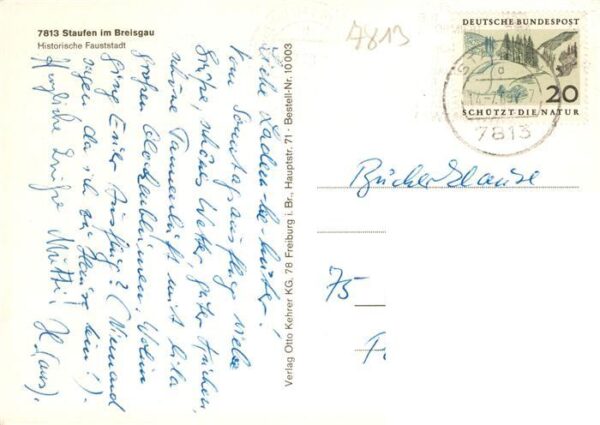 7813 Staufen im Breisgau
Historische Fauststadt
Liebe Laden-be-hüter!
Vom Sonntagsausflug viele
Grüße, schönes Wetter, guter Kuchen,
schöne Tannenluft mit lila
großen Glockenblumen. Wohin
ging Euer Ausflug? (Niemand
sagen da ich zu Hause bin!).
Herzliche Grüße Mutti! H(aus).
Verlag Otto Kehrer KG. 78 Freiburg i. Br., Hauptstr. 71 · Bestell-Nr. 10 003
7813
DEUTSCHE BUNDESPOST
20
SCHÜTZT·DIE·NATUR
7813
Bücherklause
75